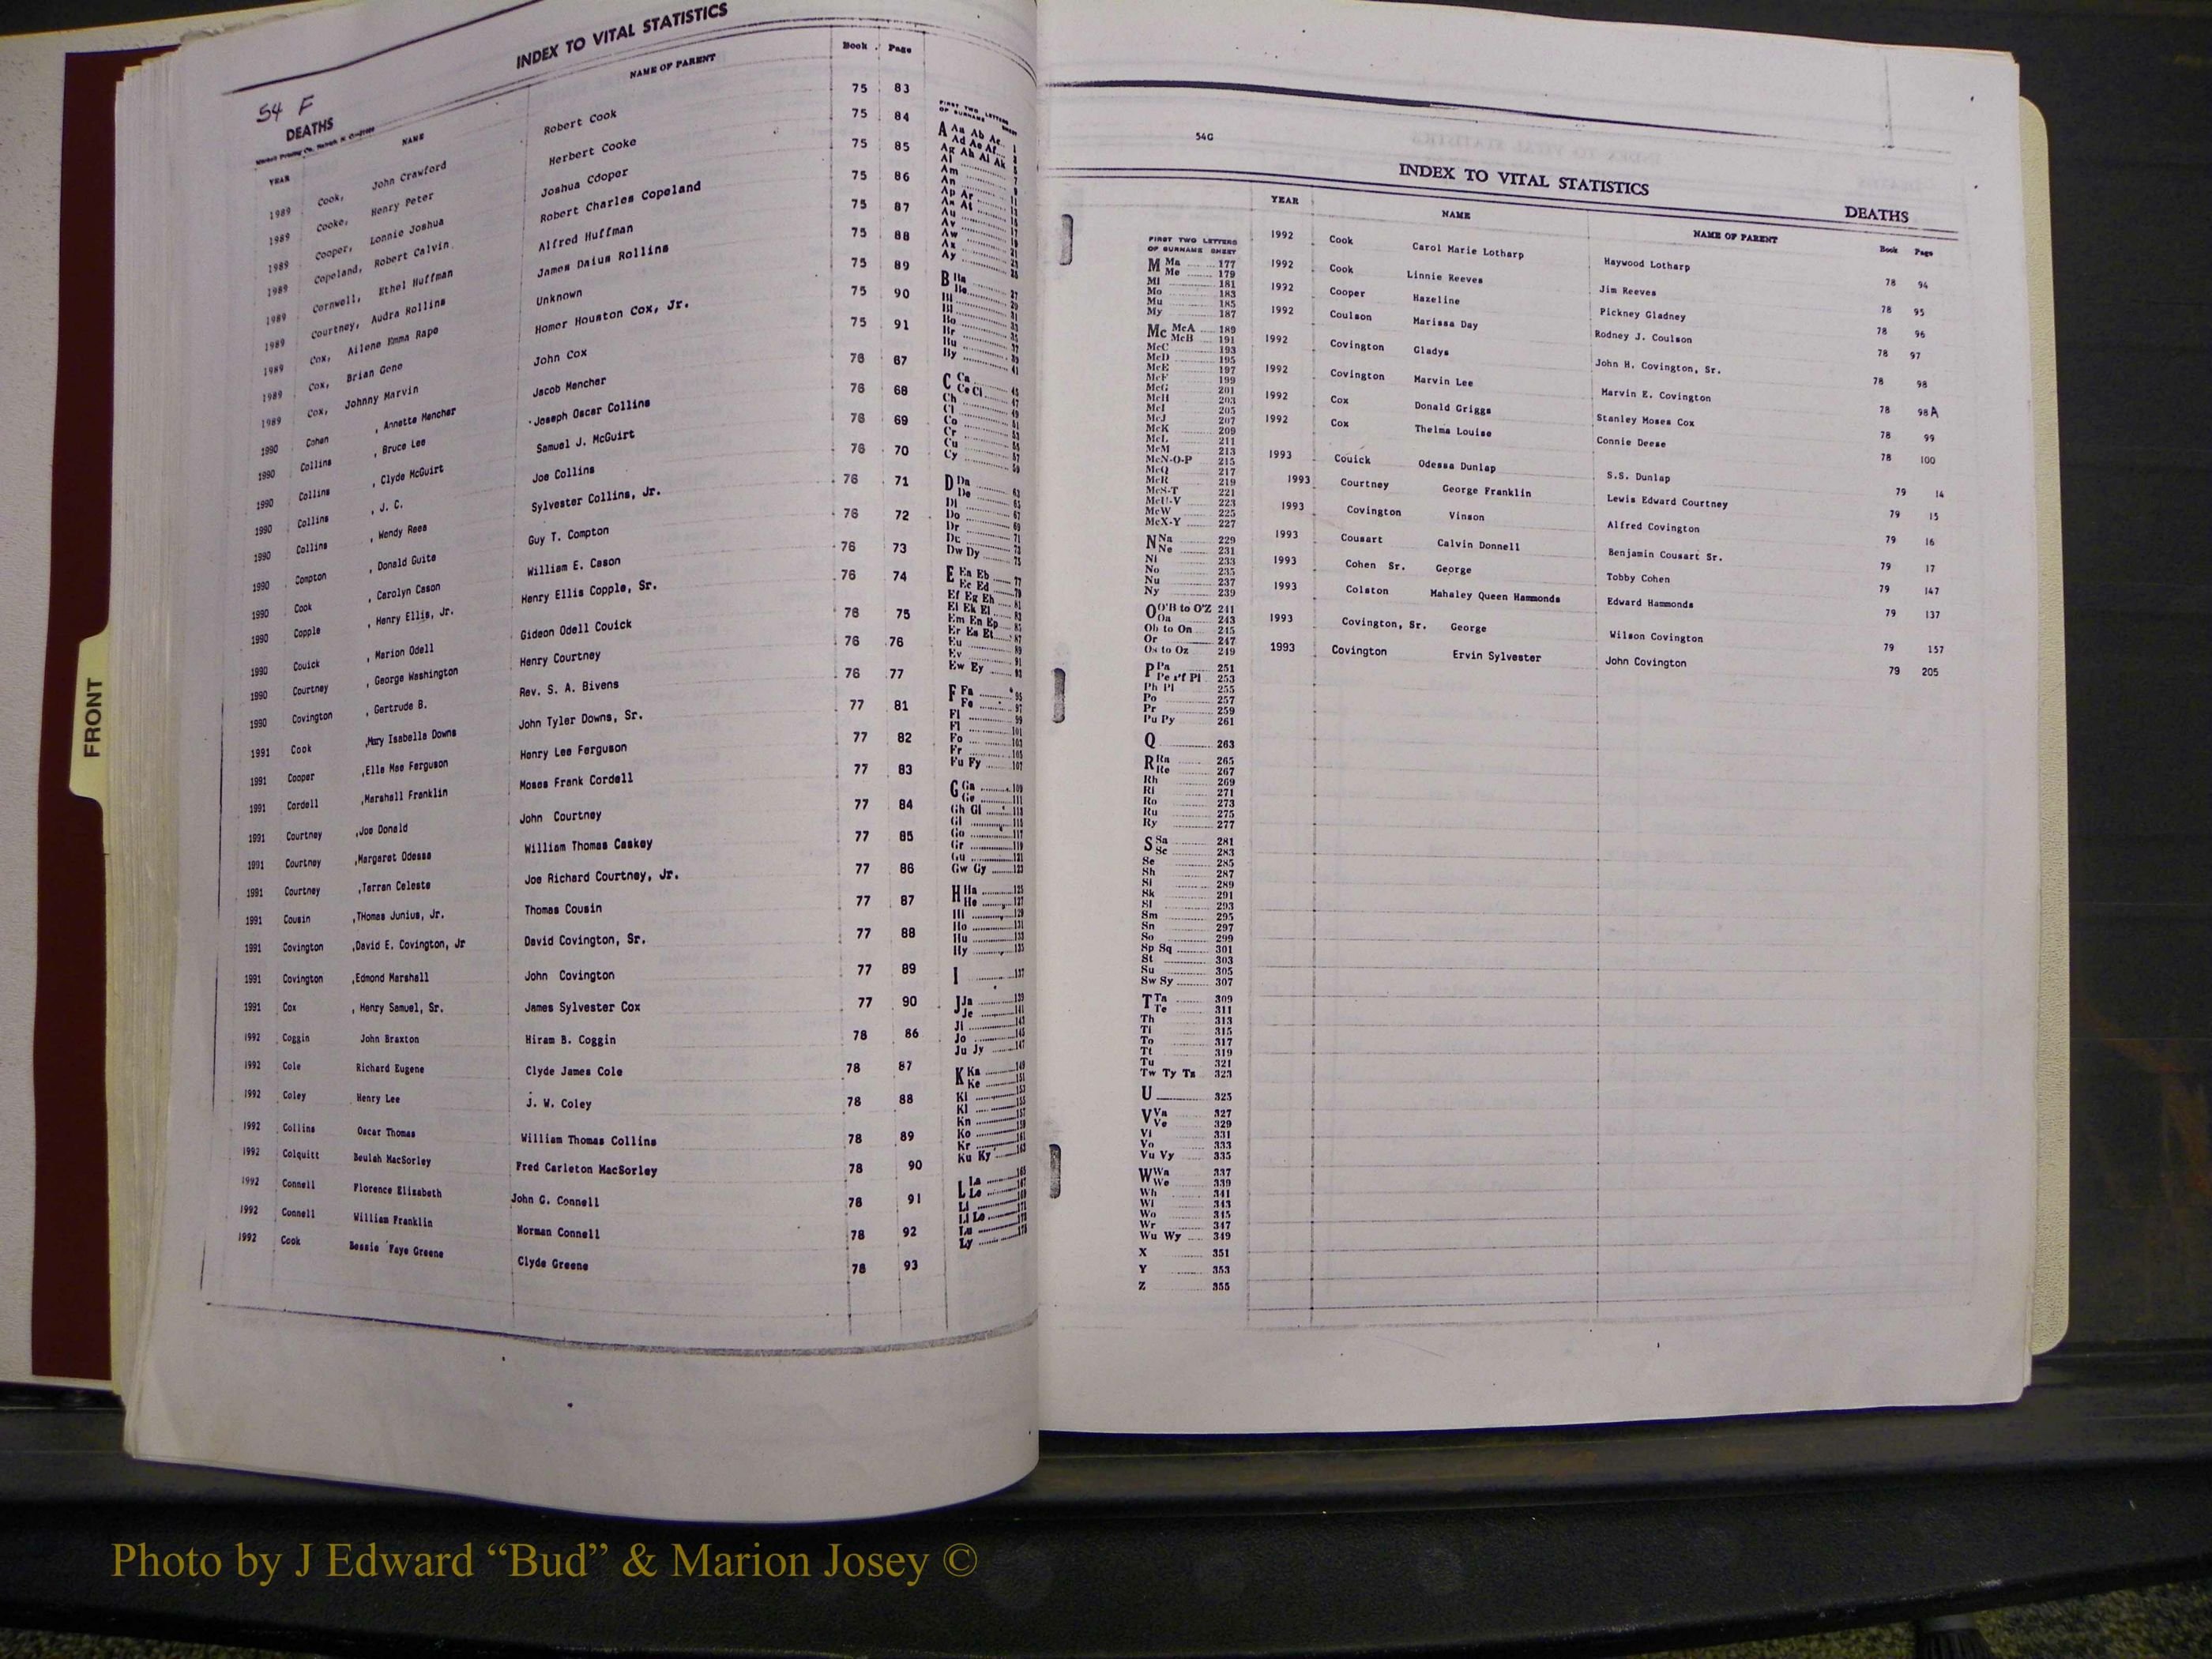 FRONT
INDEX TO VITAL STATISTICS
54 F
DEATHS
YEAR NAME NAME OF PARENT Book Page
1989 Cook, John Crawford Robert Cook 75 83
1989 Cooke, Henry Peter Herbert Cooke 75 84
1989 Cooper, Lonnie Joshua Joshua Cooper 75 85
1989 Copeland, Robert Calvin Robert Charles Copeland 75 86
1989 Cornwell, Ethel Huffman Alfred Huffman 75 87
1989 Courtney, Audra Rollins James Daius Rollins 75 88
1989 Cox, Ailene Emma Rape Unknown 75 89
1989 Cox, Brian Gene Homer Houston Cox, Jr. 75 90
1989 Cox, Johnny Marvin John Cox 75 91
1990 Cohen , Annette Mencher Jacob Mencher 76 67
1990 Collins , Bruce Lee Joseph Oscar Collins 76 68
1990 Collins , Clyde McGuirt Samuel J. McGuirt 76 69
1990 Collins , J. C. Joe Collins 76 70
1990 Collins , Wendy Rees Sylvester Collins, Jr. 76 71
1990 Compton , Donald Guite Guy T. Compton 76 72
1990 Cook , Carolyn Cason William E. Cason 76 73
1990 Copple , Henry Ellis, Jr. Henry Ellis Copple, Sr. 76 74
1990 Couick , Marion Odell Gideon Odell Couick 76 75
1990 Courtney , George Washington Henry Courtney 76 76
1990 Covington , Gertrude B. Rev. S. A. Bivens 76 77
1991 Cook ,Mary Isabelle Downs John Tyler Downs, Sr. 77 81
1991 Cooper ,Elle Mae Ferguson Henry Lee Ferguson 77 82
1991 Cordell ,Marshall Franklin Moses Frank Cordell 77 83
1991 Courtney ,Joe Donald John Courtney 77 84
1991 Courtney ,Margaret Odessa William Thomas Caskey 77 85
1991 Courtney ,Terran Celeste Joe Richard Courtney, Jr. 77 86
1991 Cousin ,THomas Junius, Jr. Thomas Cousin 77 87
1991 Covington ,David E. Covington, Jr David Covington, Sr. 77 88
1991 Covington ,Edmond Marshall John Covington 77 89
1991 Cox , Henry Samuel, Sr. James Sylvester Cox 77 90
1992 Coggin John Braxton Hiram B. Coggin 78 86
1992 Cole Richard Eugene Clyde James Cole 78 87
1992 Coley Henry Lee J. W. Coley 78 88
1992 Collins Oscar Thomas William Thomas Collins 78 89
1992 Colquitt Beulah MacSorley Fred Carleton MacSorley 78 90
1992 Connell Florence Elizabeth John G. Connell 78 91
1992 Connell William Franklin Norman Connell 78 92
1992 Cook Bessie Faye Greene Clyde Greene 78 93
FIRST TWO LETTERS
OF SURNAME SHEET
54G
INDEX TO VITAL STATISTICS
DEATHS
YEAR NAME NAME OF PARENT Book Page
1992 Cook Carol Marie Lotharp Haywood Lotharp 78 94
1992 Cook Linnie Reeves Jim Reeves 78 95
1992 Cooper Hazeline Pickney Gladney 78 96
1992 Coulson Marissa Day Rodney J. Coulson 78 97
1992 Covington Gladys John H. Covington, Sr. 78 98
1992 Covington Marvin Lee Marvin E. Covington 78 98A
1992 Cox Donald Griggs Stanley Moses Cox 78 99
1992 Cox Thelma Louise Connie Deese 78 100
1993 Couick Odessa Dunlap S.S. Dunlap 79 14
1993 Courtney George Franklin Lewis Edward Courtney 79 15
1993 Covington Vinson Alfred Covington 79 16
1993 Cousart Calvin Donnell Benjamin Cousart Sr. 79 17
1993 Cohen Sr. George Tobby Cohen 79 147
1993 Colston Mahaley Queen Hammonds Edward Hammonds 79 137
1993 Covington, Sr. George Wilson Covington 79 157
1993 Covington Ervin Sylvester John Covington 79 205
FIRST TWO LETTERS
OF SURNAME SHEET
M Ma 177
Me 179
Mi 181
Mo 183
Mu 185
My 187
Mc McA 189
McB 191
McC 193
McD 195
McE 197
McF 199
McG 201
McH 203
McI 205
McJ 207
McK 209
McL 211
McM 213
McN-O-P 215
McQ 217
McR 219
McS-T 221
McU-V 223
McW 225
McX-Y 227
N Na 229
Ne 231
Ni 233
No 235
Nu 237
Ny 239
O O'B to O'Z 241
Oa 243
Ob to On 245
Or 247
Os to Oz 249
P Pa 251
Pe Pf Pl 253
Ph Pi 255
Po 257
Pr 259
Pu Py 261
Q 263
R Ra 265
Re 267
Rh 269
Ri 271
Ro 273
Ru 275
Ry 277
S Sa 281
Sc 283
Se 285
Sh 287
Si 289
Sk 291
Sl 293
Sm 295
Sn 297
So 299
Sp Sq 301
St 303
Su 305
Sw Sy 307
T Ta 309
Te 311
Th 313
Ti 315
To 317
Tt 319
Tu 321
Tw Ty Tz 323
U 325
V Va 327
Ve 329
Vi 331
Vo 333
Vu Vy 335
W Wa 337
We 339
Wh 341
Wi 343
Wo 345
Wr 347
Wu Wy 349
X 351
Y 353
Z 355
Photo by J Edward “Bud” & Marion Josey ©